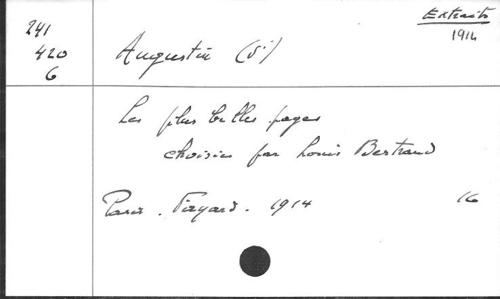 Extraits
1914
241
420
6
Augustin (St)
Les plus belles pages
choisies par Louis Bertrand
Paris. Fayard. 1914 16